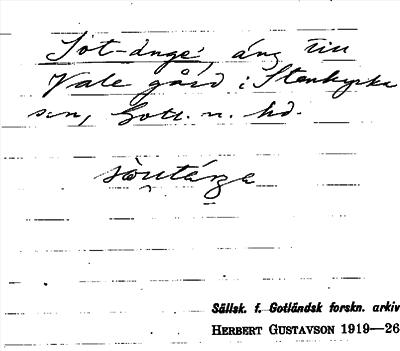 Sot-änge, äng till
Vale gård i Stenkyrka
sn, Gotl. n. hd.
Sällsk. f. Gotländsk forskn. arkiv
HERBERT GUSTAVSON 1919—26